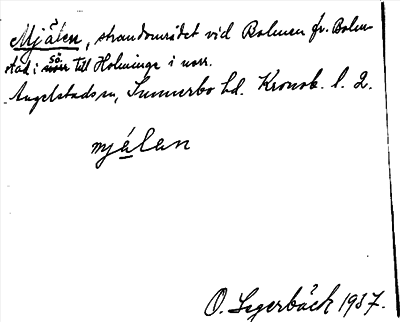 Mjälen, strandområdet vid Bolmen fr. Bolm-
stad i sö. norr till Holminge i norr.
Angelstads sn, Sunnerbo hd. Kronob. l. 2.
mjálan
O. Segerbäck 1937.